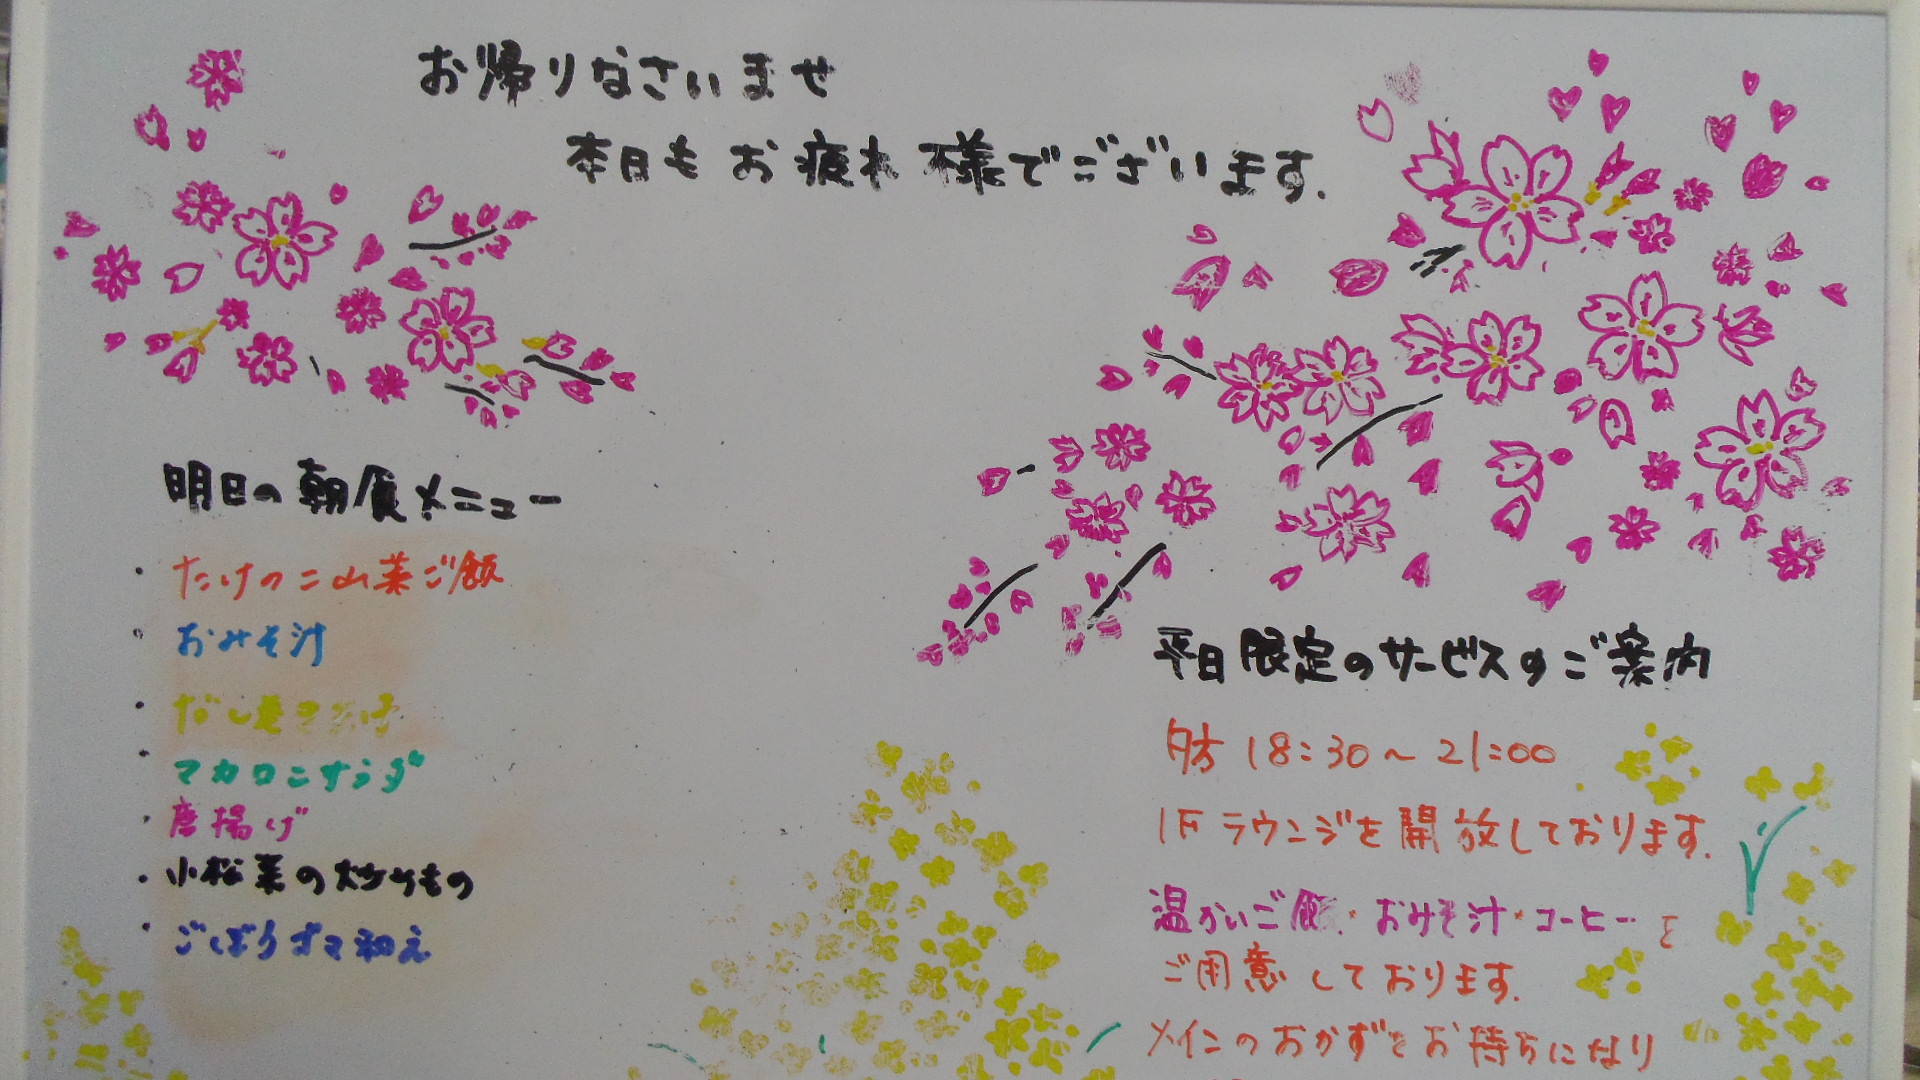 お帰りなさいませ
本日もお疲れ様でございます.
明日の朝食メニュー
・たけのこ山菜ご飯
・おみそ汁
・だし巻き
・マカロニサラダ
・唐揚げ
・小松菜の炒りもの
・ごぼうゴマ和え
平日限定のサービスのご案内
夕方 18:30〜21:00
1Fラウンジを開放しております.
温かいご飯・おみそ汁・コーヒーを
ご用意しております.
メインのおかずをお持ちになり